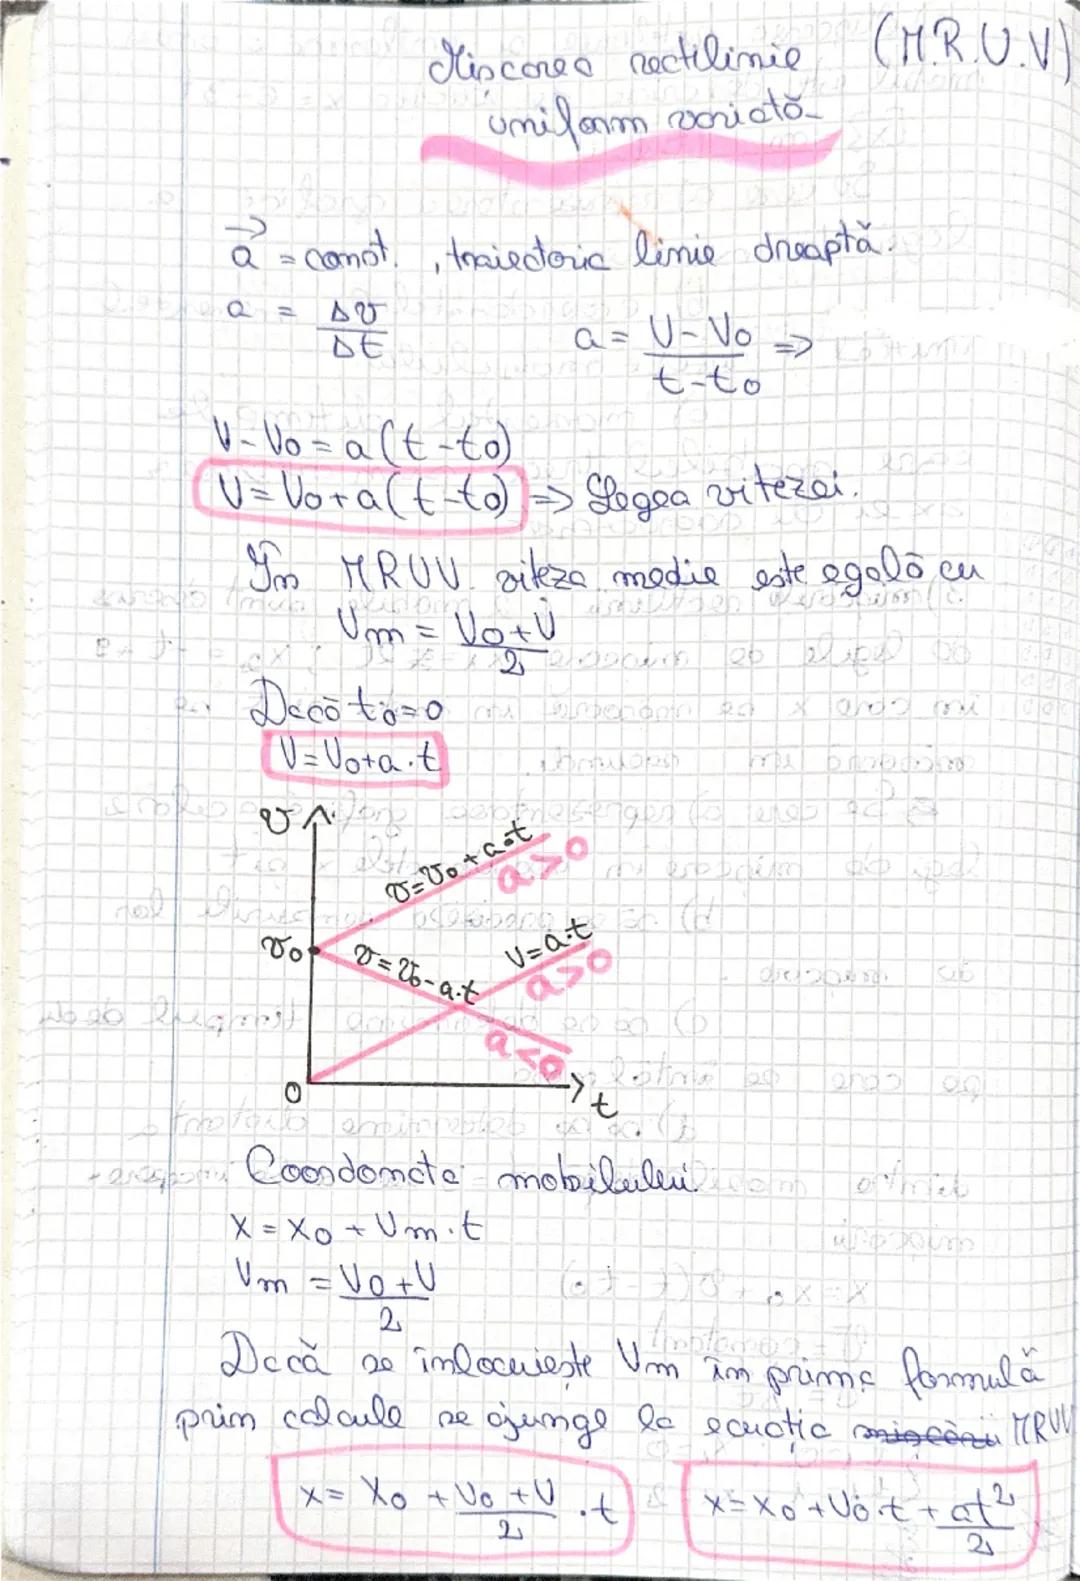 Mișcarea rectilinie (M.R.U.V)
uniform variată
a⃗ = const. , traiectoria linie dreaptă.
a = Δv/Δt a = V-V₀/t-t₀ =>
V-V₀ = a(t-t₀)
V=V₀+a(t-t₀) => Legea vitezei.
În MRUV. viteza medie este egală cu
Vm = V₀+V/2
Dacă t₀=0
V=V₀+a·t
v
v=v₀+a·t
a>0
v₀
v=v₀-a·t
V=a·t
a>0
a<0
0
t
Coordonata mobilului
x=x₀+Vm·t
Vm = V₀+V/2
Dacă se înlocuiește Vm în prima formulă
prin calcule se ajunge la ecuația mișcării MRUV
x= x₀+V₀+V/2 ·t x=x₀+V₀·t+at²/2